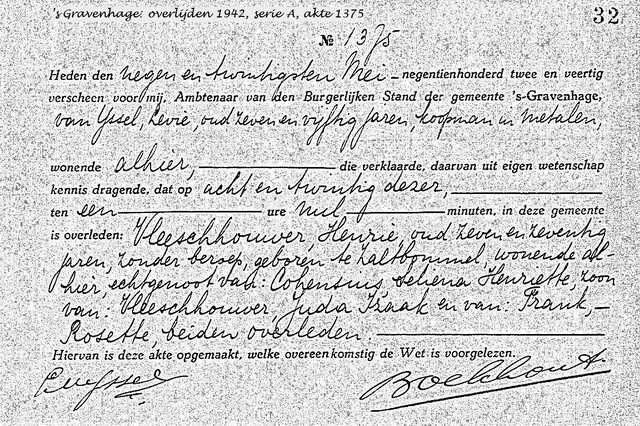 's Gravenhage: overlijden 1942, serie A, akte 1375
32
№ 1375
Heden den negen en twintigsten Mei - negentienhonderd twee en veertig
verscheen voor mij, Ambtenaar van den Burgerlijken Stand der gemeente 's-Gravenhage,
van Yssel, Levie, oud zeven en vijftig jaren, koopman in metalen,
wonende alhier, die verklaarde, daarvan uit eigen wetenschap
kennis dragende, dat op acht en twintig dezer,
ten een ure nul minuten, in deze gemeente
is overleden: Vleeschhouwer, Henrie, oud zeven en zeventig
jaren, zonder beroep, geboren te Zaltbommel, wonende al-
hier, echtgenoot van: Cohensius, Henriette, zoon
van: Vleeschhouwer, Juda Izaak en van: Frank,-
Rosette, beiden overleden.
Hiervan is deze akte opgemaakt, welke overeenkomstig de Wet is voorgelezen.
Boekhout